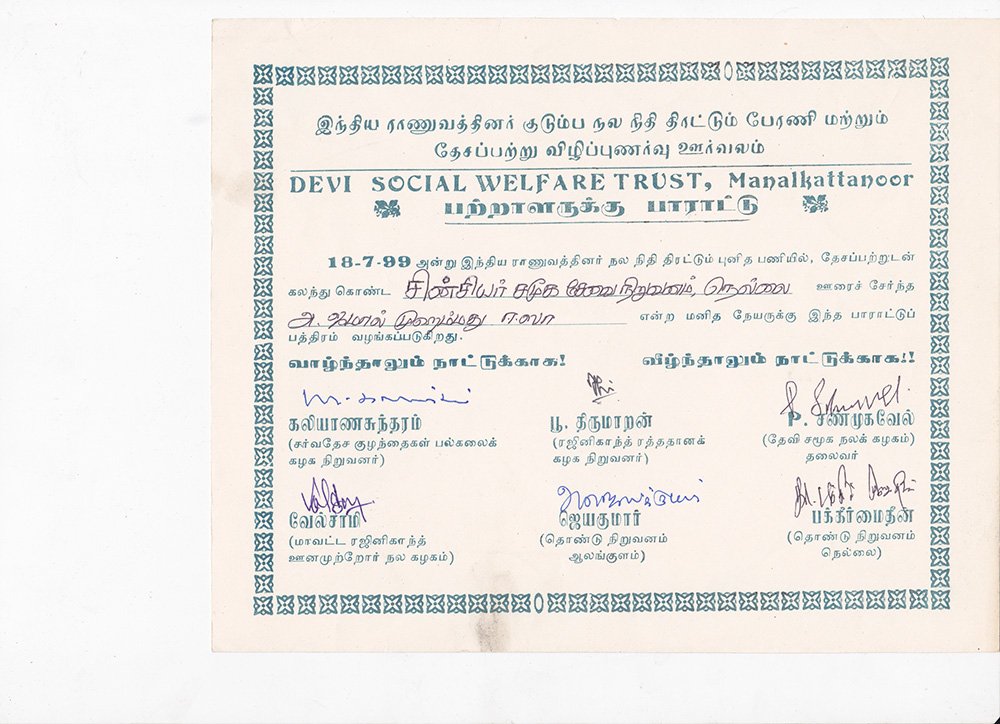 இந்திய ராணுவத்தினர் குடும்ப நல நிதி திரட்டும் பேரணி மற்றும்
தேசப்பற்று விழிப்புணர்வு ஊர்வலம்
DEVI SOCIAL WELFARE TRUST, Manalkattanoor
பற்றாளருக்கு பாராட்டு
18-7-99 அன்று இந்திய ராணுவத்தினர் நல நிதி திரட்டும் புனித பணியில், தேசப்பற்றுடன்
கலந்து கொண்ட சின்சியர் சமூக சேவை நிறுவனம், நெல்லை ஊரைச் சேர்ந்த
அ. ஜமால் முஹம்மது ஈஸா என்ற மனித நேயருக்கு இந்த பாராட்டுப்
பத்திரம் வழங்கப்படுகிறது.
வாழ்ந்தாலும் நாட்டுக்காக! வீழ்ந்தாலும் நாட்டுக்காக!!
கலியாணசுந்தரம் பூ. திருமாறன் P. சண்முகவேல்
(சர்வதேச குழந்தைகள் பல்கலைக் (ரஜினிகாந்த் ரத்ததானக் (தேவி சமூக நலக் கழகம்)
கழக நிறுவனர்) கழக நிறுவனர்) தலைவர்
வேல்சாமி ஜெயகுமார் பக்கீர்மைதீன்
(மாவட்ட ரஜினிகாந்த் (தொண்டு நிறுவனம் (தொண்டு நிறுவனம்
ஊனமுற்றோர் நல கழகம்) ஆலங்குளம்) நெல்லை)